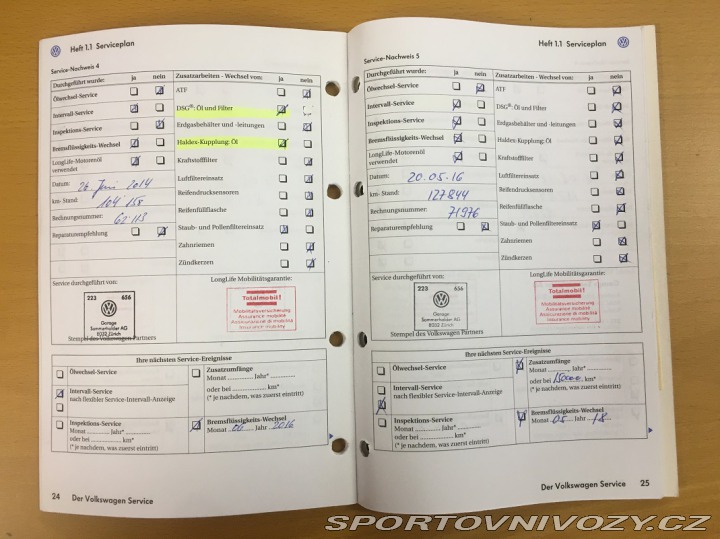 Heft 1.1 Serviceplan
Service-Nachweis 4
Durchgeführt wurde: ja nein
Ölwechsel-Service
Intervall-Service
Inspektions-Service
Bremsflüssigkeits-Wechsel
LongLife-Motorenöl
verwendet
Datum: 26. Juni 2014
km- Stand: 104 158
Rechnungsnummer: 62 113
Reparaturempfehlung
Zusatzarbeiten - Wechsel von: ja nein
ATF
DSG®: Öl und Filter
Erdgasbehälter und -leitungen
Haldex-Kupplung: Öl
Kraftstofffilter
Luftfiltereinsatz
Reifendrucksensoren
Reifenfüllflasche
Staub- und Pollenfiltereinsatz
Zahnriemen
Zündkerzen
Service durchgeführt von:
223 656
Garage
Sommerhalder AG
8032 Zürich
Stempel des Volkswagen Partners
LongLife Mobilitätsgarantie:
Totalmobil!
Mobilitätsversicherung
Assurance mobilité
Assicurazione di mobilità
Insurance mobility
Ihre nächsten Service-Ereignisse
Ölwechsel-Service
Intervall-Service
nach flexibler Service-Intervall-Anzeige
Inspektions-Service
Monat Jahr*
oder bei km*
(* je nachdem, was zuerst eintritt)
Zusatzumfänge
Monat Jahr*
oder bei km*
(* je nachdem, was zuerst eintritt)
Bremsflüssigkeits-Wechsel
Monat 06 Jahr 2016
24 Der Volkswagen Service
Heft 1.1 Serviceplan
Service-Nachweis 5
Durchgeführt wurde: ja nein
Ölwechsel-Service
Intervall-Service
Inspektions-Service
Bremsflüssigkeits-Wechsel
LongLife-Motorenöl
verwendet
Datum: 20.05.16
km- Stand: 127844
Rechnungsnummer: 71976
Reparaturempfehlung
Zusatzarbeiten - Wechsel von: ja nein
ATF
DSG®: Öl und Filter
Erdgasbehälter und -leitungen
Haldex-Kupplung: Öl
Kraftstofffilter
Luftfiltereinsatz
Reifendrucksensoren
Reifenfüllflasche
Staub- und Pollenfiltereinsatz
Zahnriemen
Zündkerzen
Service durchgeführt von:
223 656
Garage
Sommerhalder AG
8032 Zürich
Stempel des Volkswagen Partners
LongLife Mobilitätsgarantie:
Totalmobil!
Mobilitätsversicherung
Assurance mobilité
Assicurazione di mobilità
Insurance mobility
Ihre nächsten Service-Ereignisse
Ölwechsel-Service
Intervall-Service
nach flexibler Service-Intervall-Anzeige
Inspektions-Service
Monat Jahr*
oder bei km*
(* je nachdem, was zuerst eintritt)
Zusatzumfänge
Monat Jahr*
oder bei 150000 km*
(* je nachdem, was zuerst eintritt)
Bremsflüssigkeits-Wechsel
Monat 05 Jahr 18
Der Volkswagen Service 25
SPORTOVNIVOZY.CZ